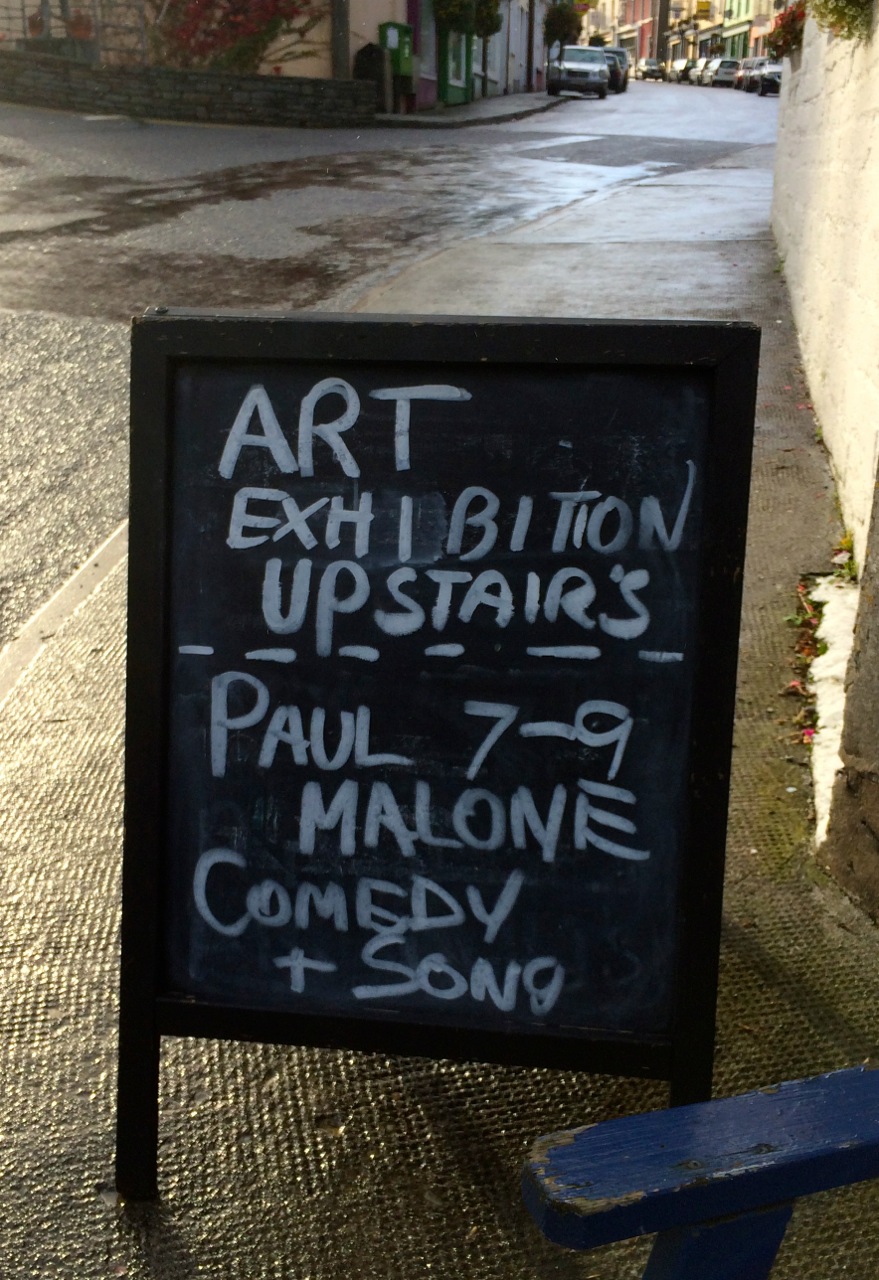 ART
EXHIBITION
UPSTAIR'S
- - - - - -
PAUL 7-9
MALONE
COMEDY
+ SONG